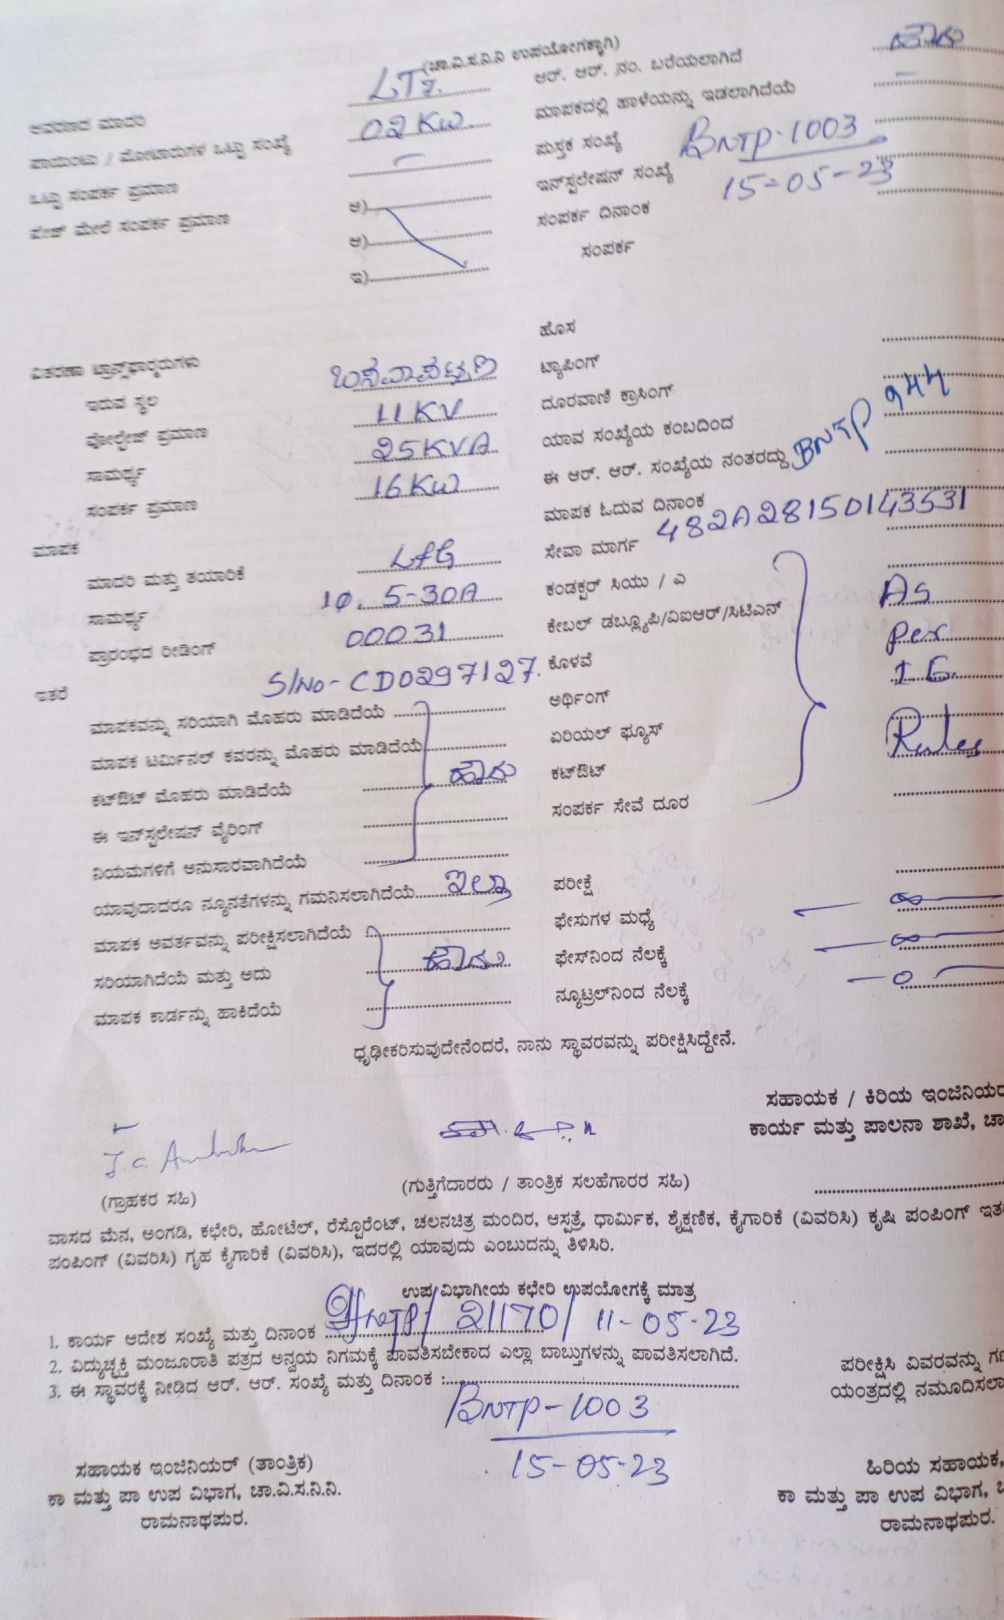 (ಚಾ.ವಿ.ಸ.ನಿ.ನಿ ಉಪಯೋಗಕ್ಕಾಗಿ)
ಆವರಣದ ಮಾದರಿ LT7. ಆರ್. ಆರ್. ನಂ. ಬರೆಯಲಾಗಿದೆ ಹೌದು
ಪಾಯಿಂಟು / ಮೋಟಾರುಗಳ ಒಟ್ಟು ಸಂಖ್ಯೆ 02 KW. ಮಾಪಕದಲ್ಲಿ ಹಾಳೆಯನ್ನು ಇಡಲಾಗಿದೆಯೆ –
ಒಟ್ಟು ಸಂಪರ್ಕ ಪ್ರಮಾಣ – ಪುಸ್ತಕ ಸಂಖ್ಯೆ
ಪೇಜ್ ಮೇಲೆ ಸಂಪರ್ಕ ಪ್ರಮಾಣ ಅ) ಇನ್‌ಸ್ಟಲೇಷನ್ ಸಂಖ್ಯೆ BNTP-1003
ಆ) ಸಂಪರ್ಕ ದಿನಾಂಕ 15-05-23
ಇ) ಸಂಪರ್ಕ
ಹೊಸ
ವಿತರಣಾ ಟ್ರಾನ್ಸ್‌ಫಾರ್ಮರುಗಳು ಟ್ಯಾಪಿಂಗ್
ಇರುವ ಸ್ಥಲ ಬಸವಾಪಟ್ಟಣ ದೂರವಾಣಿ ಕ್ರಾಸಿಂಗ್
ವೋಲ್ಟೇಜ್ ಪ್ರಮಾಣ 11KV ಯಾವ ಸಂಖ್ಯೆಯ ಕಂಬದಿಂದ
ಸಾಮರ್ಥ್ಯ 25KVA ಈ ಆರ್. ಆರ್. ಸಂಖ್ಯೆಯ ನಂತರದ್ದು BNTP 944
ಸಂಪರ್ಕ ಪ್ರಮಾಣ 16KW ಮಾಪಕ ಓದುವ ದಿನಾಂಕ
ಮಾಪಕ ಸೇವಾ ಮಾರ್ಗ 482A28150143531
ಮಾದರಿ ಮತ್ತು ತಯಾರಿಕೆ L&G ಕಂಡಕ್ಟರ್ ಸಿಯು / ಎ As
ಸಾಮರ್ಥ್ಯ 1Φ. 5-30A ಕೇಬಲ್ ಡಬ್ಲ್ಯೂಪಿ/ವಿಐಆರ್/ಸಿಟಿಎನ್ per
ಪ್ರಾರಂಭದ ರೀಡಿಂಗ್ 00031 ಕೊಳವೆ I E.
ಇತರೆ S/No- CD0297127. ಅರ್ಥಿಂಗ್
ಮಾಪಕವನ್ನು ಸರಿಯಾಗಿ ಮೊಹರು ಮಾಡಿದೆಯೆ ಏರಿಯಲ್ ಫ್ಯೂಸ್ Rules
ಮಾಪಕ ಟರ್ಮಿನಲ್ ಕವರನ್ನು ಮೊಹರು ಮಾಡಿದೆಯೆ ಹೌದು ಕಟ್‌ಔಟ್
ಕಟ್‌ಔಟ್ ಮೊಹರು ಮಾಡಿದೆಯೆ ಸಂಪರ್ಕ ಸೇವೆ ದೂರ
ಈ ಇನ್‌ಸ್ಟಲೇಷನ್ ವೈರಿಂಗ್
ನಿಯಮಗಳಿಗೆ ಅನುಸಾರವಾಗಿದೆಯೆ
ಯಾವುದಾದರೂ ನ್ಯೂನತೆಗಳನ್ನು ಗಮನಿಸಲಾಗಿದೆಯೆ ಇಲ್ಲಾ ಪರೀಕ್ಷೆ
ಮಾಪಕ ಅವರ್ತವನ್ನು ಪರೀಕ್ಷಿಸಲಾಗಿದೆಯೆ ಫೇಸುಗಳ ಮಧ್ಯೆ – ∞ –
ಸರಿಯಾಗಿದೆಯೆ ಮತ್ತು ಅದು ಹೌದು ಫೇಸ್‌ನಿಂದ ನೆಲಕ್ಕೆ – ∞ –
ಮಾಪಕ ಕಾರ್ಡನ್ನು ಹಾಕಿದೆಯೆ ನ್ಯೂಟ್ರಲ್‌ನಿಂದ ನೆಲಕ್ಕೆ – 0 –
ಧೃಢೀಕರಿಸುವುದೇನೆಂದರೆ, ನಾನು ಸ್ಥಾವರವನ್ನು ಪರೀಕ್ಷಿಸಿದ್ದೇನೆ.
ಸಹಾಯಕ / ಕಿರಿಯ ಇಂಜಿನಿಯರ
ಕಾರ್ಯ ಮತ್ತು ಪಾಲನಾ ಶಾಖೆ, ಚಾ
(ಗ್ರಾಹಕರ ಸಹಿ) (ಗುತ್ತಿಗೆದಾರರು / ತಾಂತ್ರಿಕ ಸಲಹೆಗಾರರ ಸಹಿ)
ವಾಸದ ಮೆನ, ಅಂಗಡಿ, ಕಛೇರಿ, ಹೋಟೆಲ್, ರೆಸ್ಟೊರೆಂಟ್, ಚಲನಚಿತ್ರ ಮಂದಿರ, ಆಸ್ಪತ್ರೆ, ಧಾರ್ಮಿಕ, ಶೈಕ್ಷಣಿಕ, ಕೈಗಾರಿಕೆ (ವಿವರಿಸಿ) ಕೃಷಿ ಪಂಪಿಂಗ್ ಇತ
ಪಂಪಿಂಗ್ (ವಿವರಿಸಿ) ಗೃಹ ಕೈಗಾರಿಕೆ (ವಿವರಿಸಿ), ಇದರಲ್ಲಿ ಯಾವುದು ಎಂಬುದನ್ನು ತಿಳಿಸಿರಿ.
ಉಪ ವಿಭಾಗೀಯ ಕಛೇರಿ ಉಪಯೋಗಕ್ಕೆ ಮಾತ್ರ
1. ಕಾರ್ಯ ಆದೇಶ ಸಂಖ್ಯೆ ಮತ್ತು ದಿನಾಂಕ 21170/ 11-05-23
2. ವಿದ್ಯುಚ್ಛಕ್ತಿ ಮಂಜೂರಾತಿ ಪತ್ರದ ಅನ್ವಯ ನಿಗಮಕ್ಕೆ ಪಾವತಿಸಬೇಕಾದ ಎಲ್ಲಾ ಬಾಬ್ತುಗಳನ್ನು ಪಾವತಿಸಲಾಗಿದೆ. ಪರೀಕ್ಷಿಸಿ ವಿವರವನ್ನು ಗಣ
3. ಈ ಸ್ಥಾವರಕ್ಕೆ ನೀಡಿದ ಆರ್. ಆರ್. ಸಂಖ್ಯೆ ಮತ್ತು ದಿನಾಂಕ : ಯಂತ್ರದಲ್ಲಿ ನಮೂದಿಸಲಾ
BNTP-1003
15-05-23
ಸಹಾಯಕ ಇಂಜಿನಿಯರ್ (ತಾಂತ್ರಿಕ) ಹಿರಿಯ ಸಹಾಯಕ,
ಕಾ ಮತ್ತು ಪಾ ಉಪ ವಿಭಾಗ, ಚಾ.ವಿ.ಸ.ನಿ.ನಿ. ಕಾ ಮತ್ತು ಪಾ ಉಪ ವಿಭಾಗ,
ರಾಮನಾಥಪುರ. ರಾಮನಾಥಪುರ.